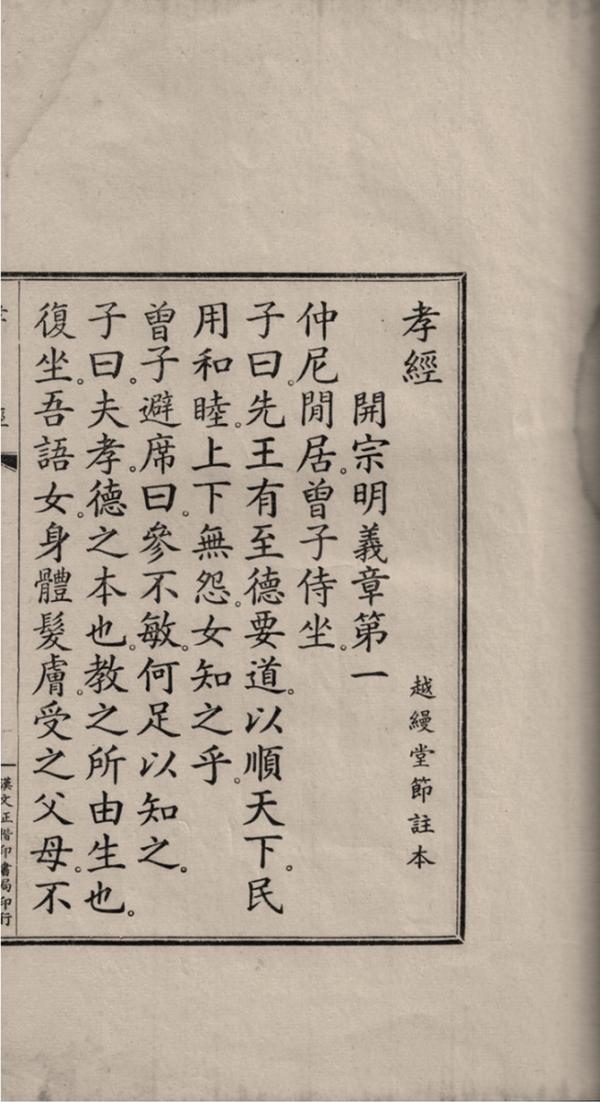 孝經
越縵堂節註本
開宗明義章第一
仲尼閒居。曾子侍坐。
子曰。先王有至德要道。以順天下。民
用和睦。上下無怨。女知之乎。
曾子避席曰。參不敏。何足以知之。
子曰。夫孝。德之本也。教之所由生也。
復坐。吾語女。身體髮膚。受之父母。不
漢文正楷印書局印行